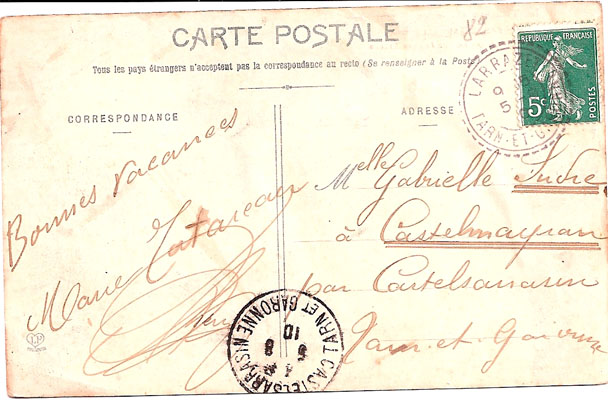 82
CARTE POSTALE
Tous les pays étrangers n'acceptent pas la correspondance au recto (Se renseigner à la Poste)
CORRESPONDANCE
ADRESSE
RÉPUBLIQUE FRANÇAISE
5c
POSTES
TARN-ET-G
9
5
Bonnes vacances
Marie
Melle Gabrielle
à Castelmayran
par Castelsarrasin
Tarn et Garonne
CASTELSARRASIN
TARN ET GARONNE
5 8
10